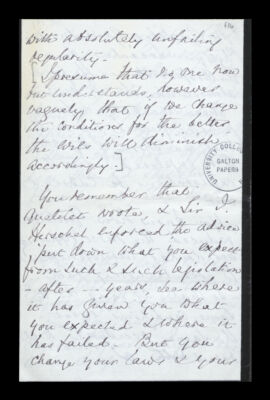 with absolutely unfailing
regularity.
[I presume that every one now
understands, however
vaguely, that if we change
the conditions for the better
the evils will diminish
accordingly]
UNIVERSITY COLLEGE
GALTON
PAPERS
You remember that
Quetelet wrote, & Sir J.
Herschel enforced the advice
"put down what you expect
from such & such legislation
- after - years, see where
it has given you what
you expected & where it
has failed. But you
change your laws & your